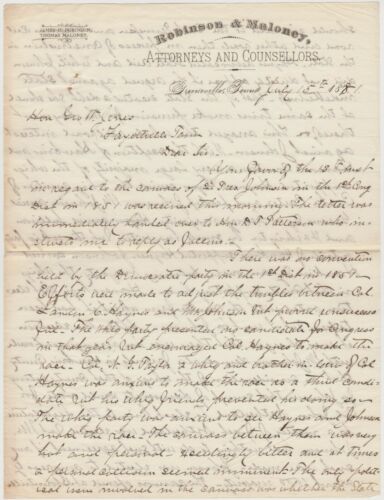 JAMES H. ROBINSON,
THOMAS MALONEY,
Robinson & Maloney,
ATTORNEYS AND COUNSELLORS.
Greeneville, Tenn July 15th 1881
Hon Geo W Jones
Fayetteville Tenn
Dear Sir.
Your favor of the 13th inst
in regard to the canvass of Johnson in the 1st Cong
Dist in 1851 was received this morning. The letter was
immediately handed over to Hon D T Patterson who in-
structs me to reply as follows.
There was no convention
held by the Democratic party in the 1st Dist in 1851.
Efforts were made to adjust the troubles between Col
Landon C Haynes and Mr Johnson but proved unsuccess
ful. The Whig party presented no candidate for Congress
in that year but encouraged Col Haynes to make the
race. Col. N. G. Taylor a whig and brother in law of Col
Haynes was anxious to make the race as a third candi-
date but his Whig friends prevented his doing so.
The Whig party was anxious to see Haynes and Johnson
make the race. The canvass between them was very
hot and personal. exceedingly bitter and at times
a personal collision seemed imminent. The only polit-
ical issue involved in the canvass was whether the State